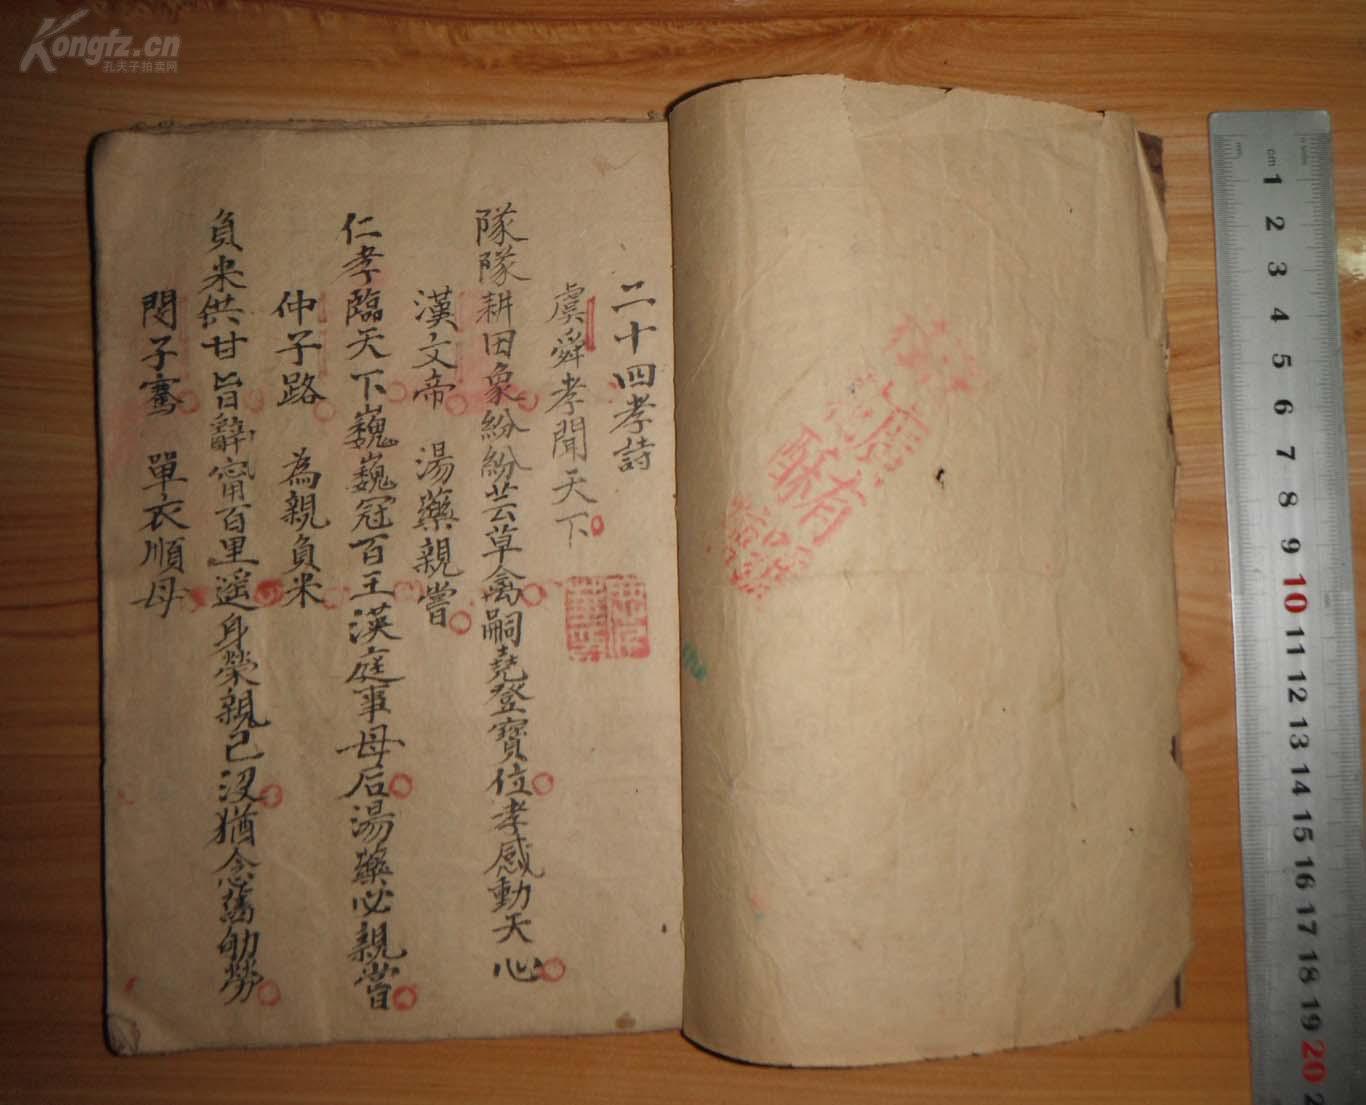 Kongfz.cn
孔夫子拍卖网
二十四孝詩
虞舜孝聞天下
隊隊耕田象紛紛芸草禽嗣堯登寶位孝感動天心
漢文帝 湯藥親嘗
仁孝臨天下巍巍冠百王漢庭事母后湯藥必親嘗
仲子路 為親負米
負米供甘旨辭甯百里遥身榮親已没猶念舊劬勞
閔子騫 單衣順母
cm
1
2
3
4
5
6
7
8
9
10
11
12
13
14
15
16
17
18
19
20